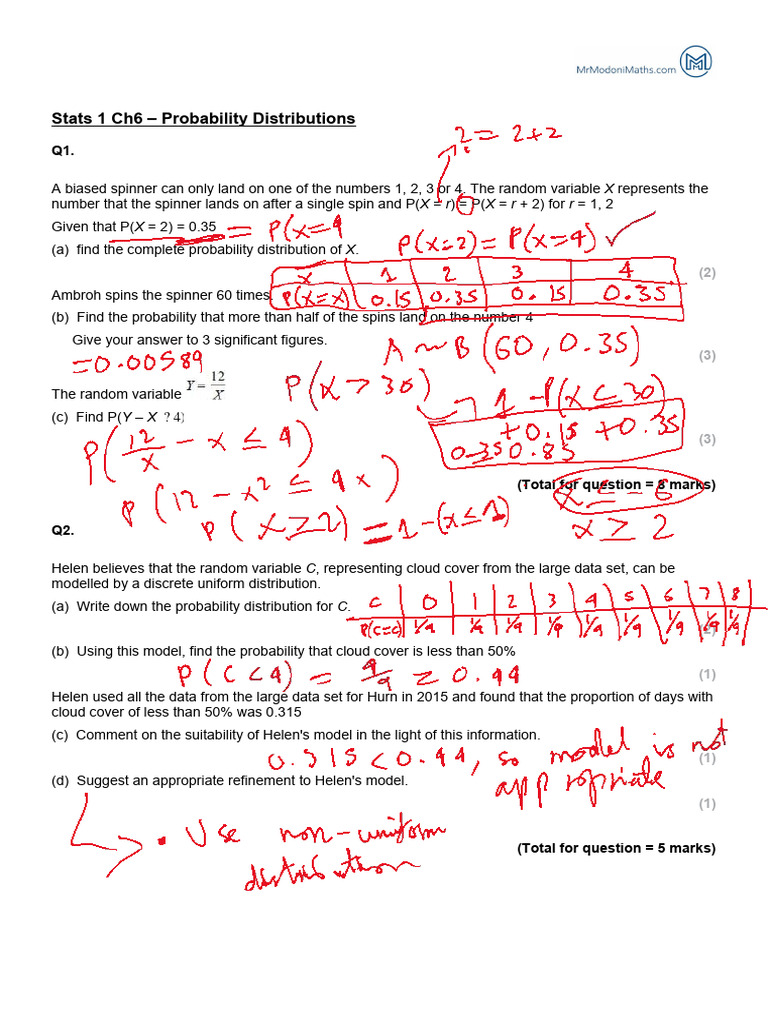 MrModoniMaths.com
Stats 1 Ch6 – Probability Distributions
Q1.
2 = 2+2
A biased spinner can only land on one of the numbers 1, 2, 3 or 4. The random variable X represents the
number that the spinner lands on after a single spin and P(X = r) = P(X = r + 2) for r = 1, 2
Given that P(X = 2) = 0.35 = P(X=4
(a) find the complete probability distribution of X. P(X=2) = P(X=4) ✓
x 1 2 3 4 (2)
Ambroh spins the spinner 60 times. P(X=x) 0.15 0.35 0.15 0.35
(b) Find the probability that more than half of the spins land on the number 4
Give your answer to 3 significant figures. A ~ B(60, 0.35)
(3)
= 0.00589
The random variable Y = 12/X P(X > 30) 1 - P(X ≤ 30)
(c) Find P(Y – X ? 4)
+0.15 +0.35
(3)
P(12/x - x ≤ 4) 0.35 0.85
(Total for question = 8 marks)
P(12 - x² ≤ 4x) x ≤ -6
P(X ≥ 2) = 1-(x ≤ 1) x ≥ 2
Q2.
Helen believes that the random variable C, representing cloud cover from the large data set, can be
modelled by a discrete uniform distribution.
(a) Write down the probability distribution for C. C 0 1 2 3 4 5 6 7 8
P(C=c) 1/9 1/9 1/9 1/9 1/9 1/9 1/9 1/9 1/9
(2)
(b) Using this model, find the probability that cloud cover is less than 50%
P(C<4) = 4/9 = 0.44 (1)
Helen used all the data from the large data set for Hurn in 2015 and found that the proportion of days with
cloud cover of less than 50% was 0.315
(c) Comment on the suitability of Helen's model in the light of this information.
0.315 < 0.44, so model is not (1)
appropriate
(d) Suggest an appropriate refinement to Helen's model.
(1)
• Use non-uniform
distribution
(Total for question = 5 marks)